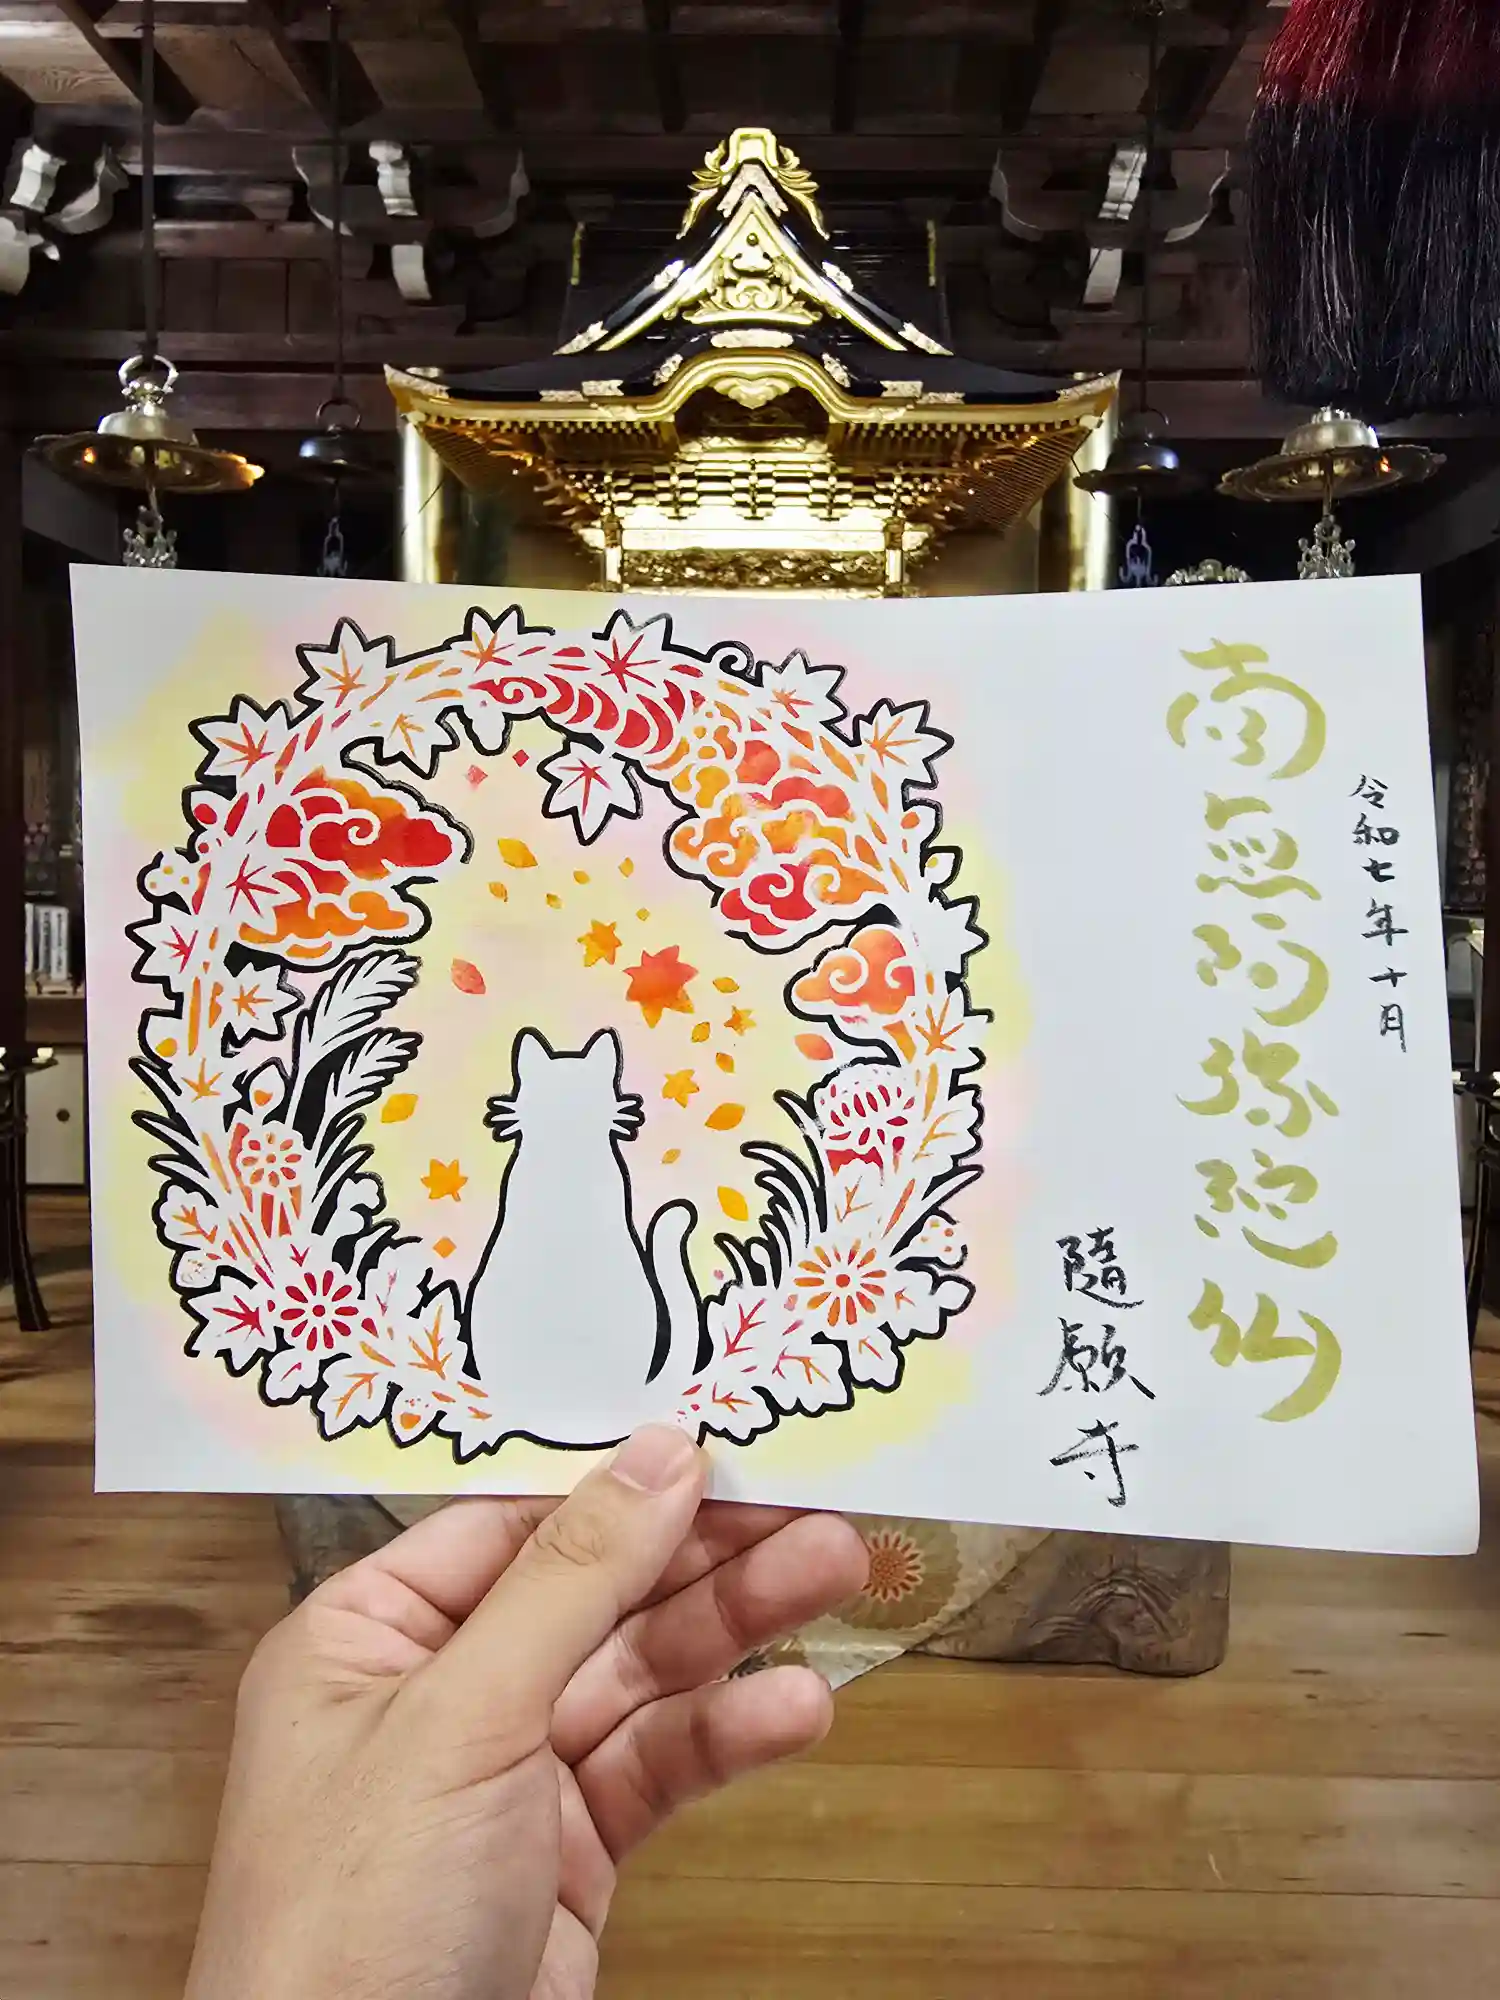 令和七年十月
南無阿弥陀仏
隨願寺